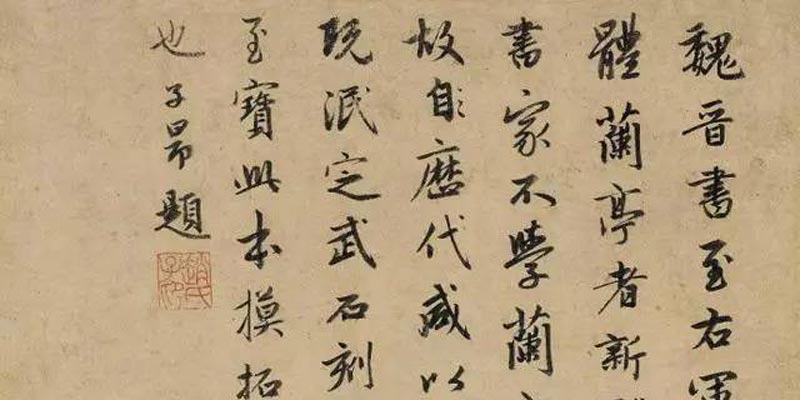 魏晋書至右軍
體蘭亭者新
書家不學蘭
故自歷代咸以
既泯定武石刻
至寶此本摸拓
也子昂題
趙氏子昂